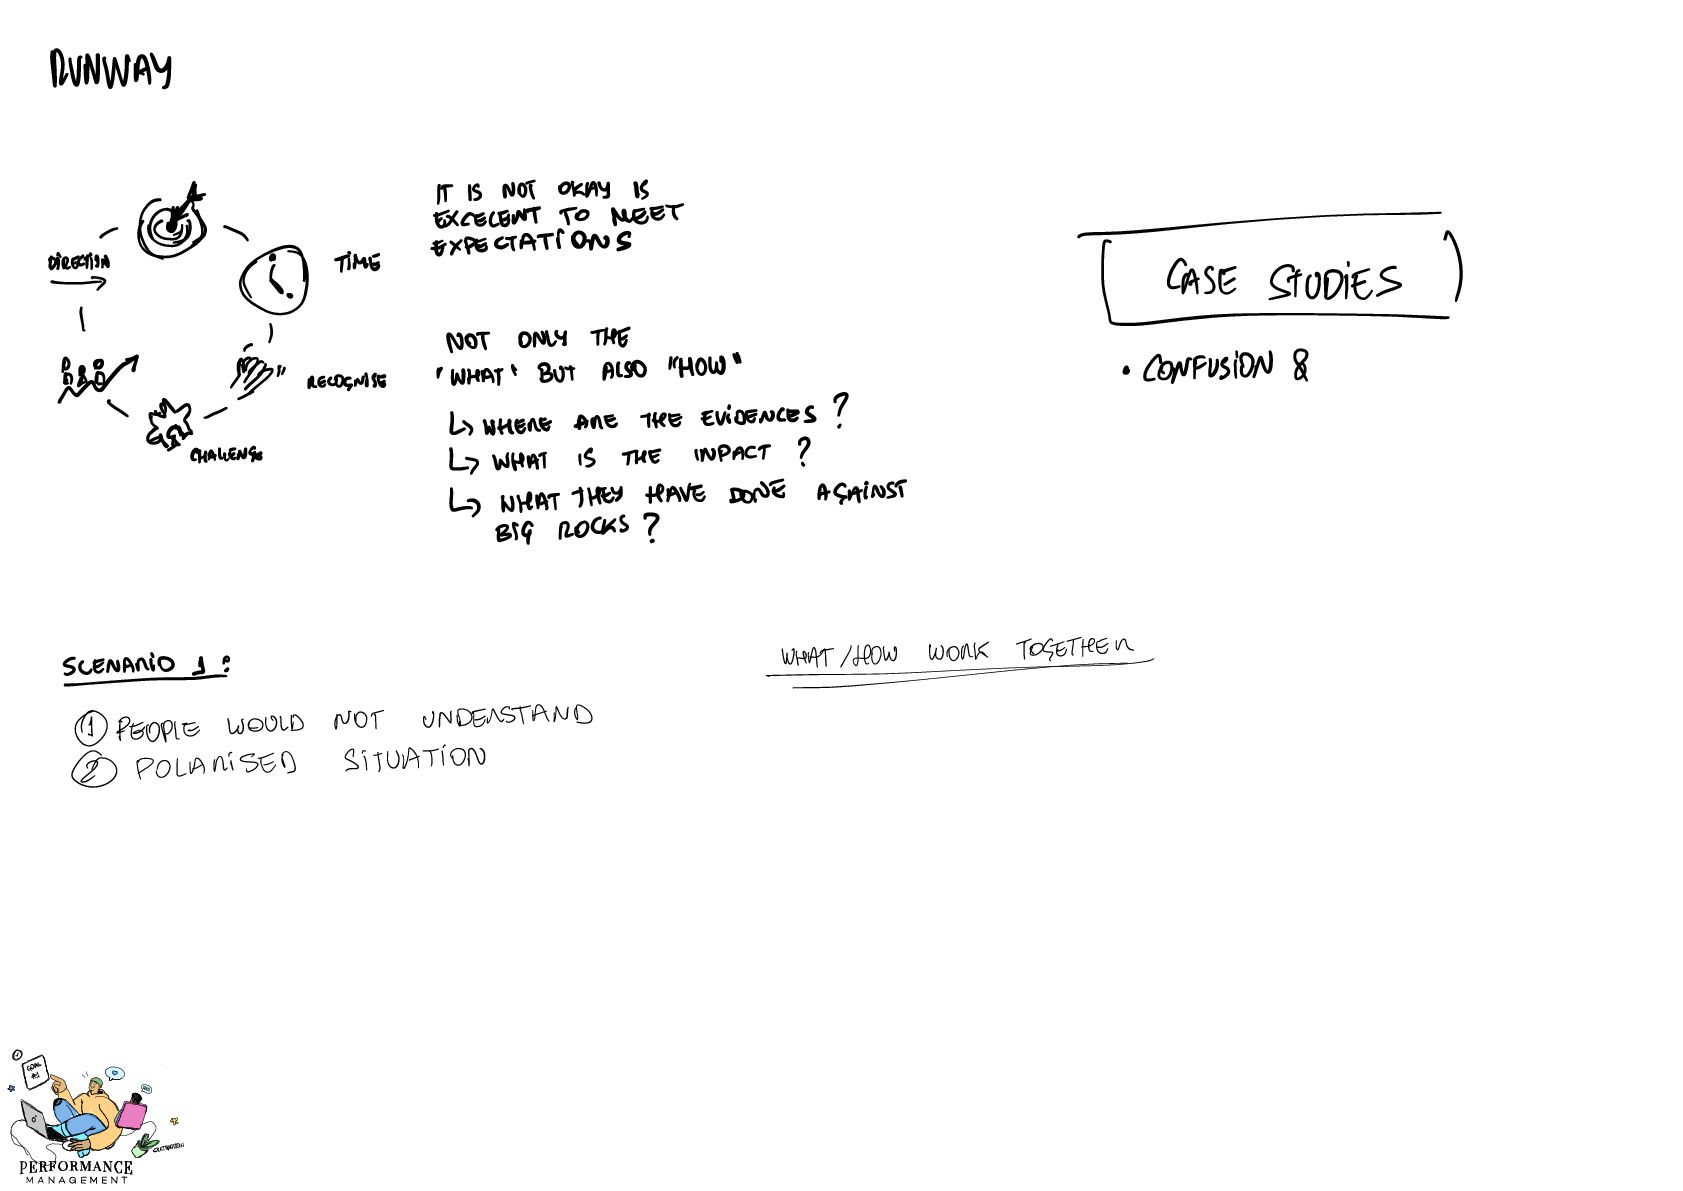 RUNWAY
DIRECTION
TIME
RECOGNISE
CHALLENGE
IT IS NOT OKAY IS
EXCELENT TO MEET
EXPECTATIONS
NOT ONLY THE
"WHAT" BUT ALSO "HOW"
↳ WHERE ARE THE EVIDENCES?
↳ WHAT IS THE INPACT?
↳ WHAT THEY HAVE DONE AGAINST
BIG ROCKS?
CASE STUDIES
• CONFUSION &
SCENARIO 1:
① PEOPLE WOULD NOT UNDERSTAND
② POLARISED SITUATION
WHAT/HOW WORK TOGETHER
GOAL
#1
PERFORMANCE
MANAGEMENT